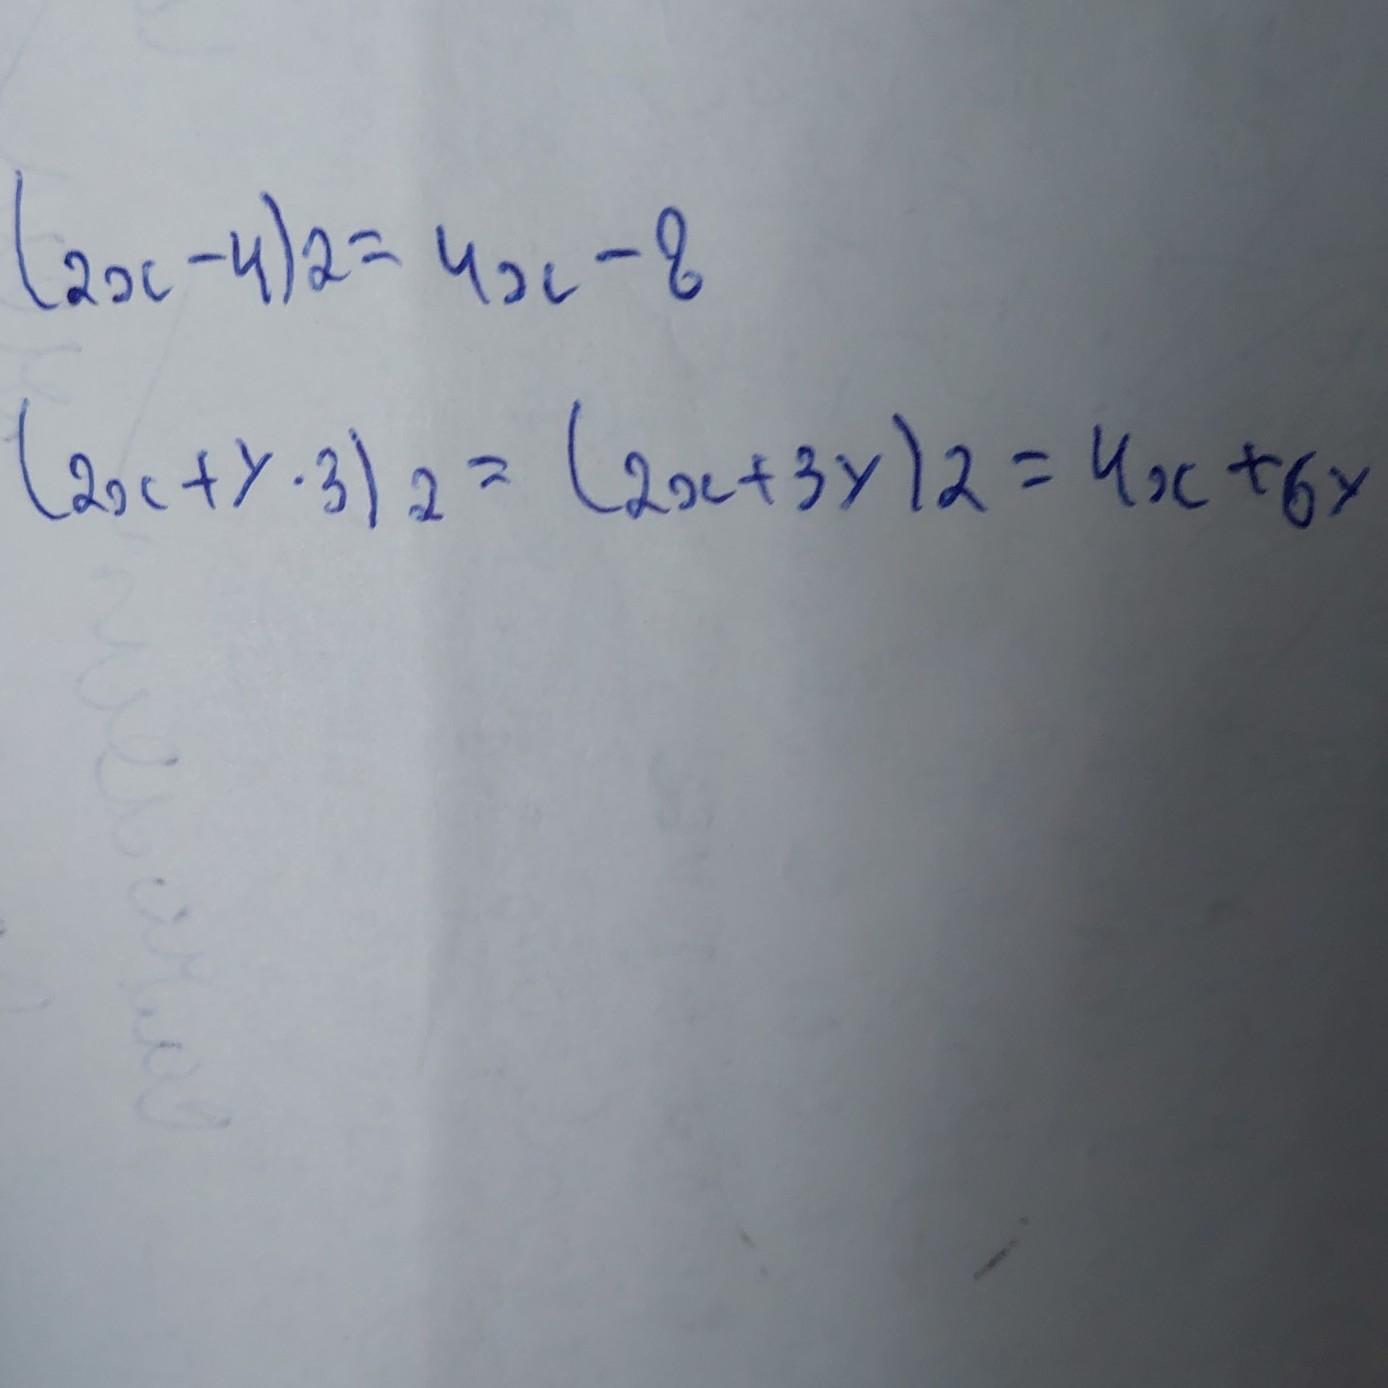 (2x-4)2= 4x-8
(2x+y·3)2= (2x+3y)2= 4x+6y